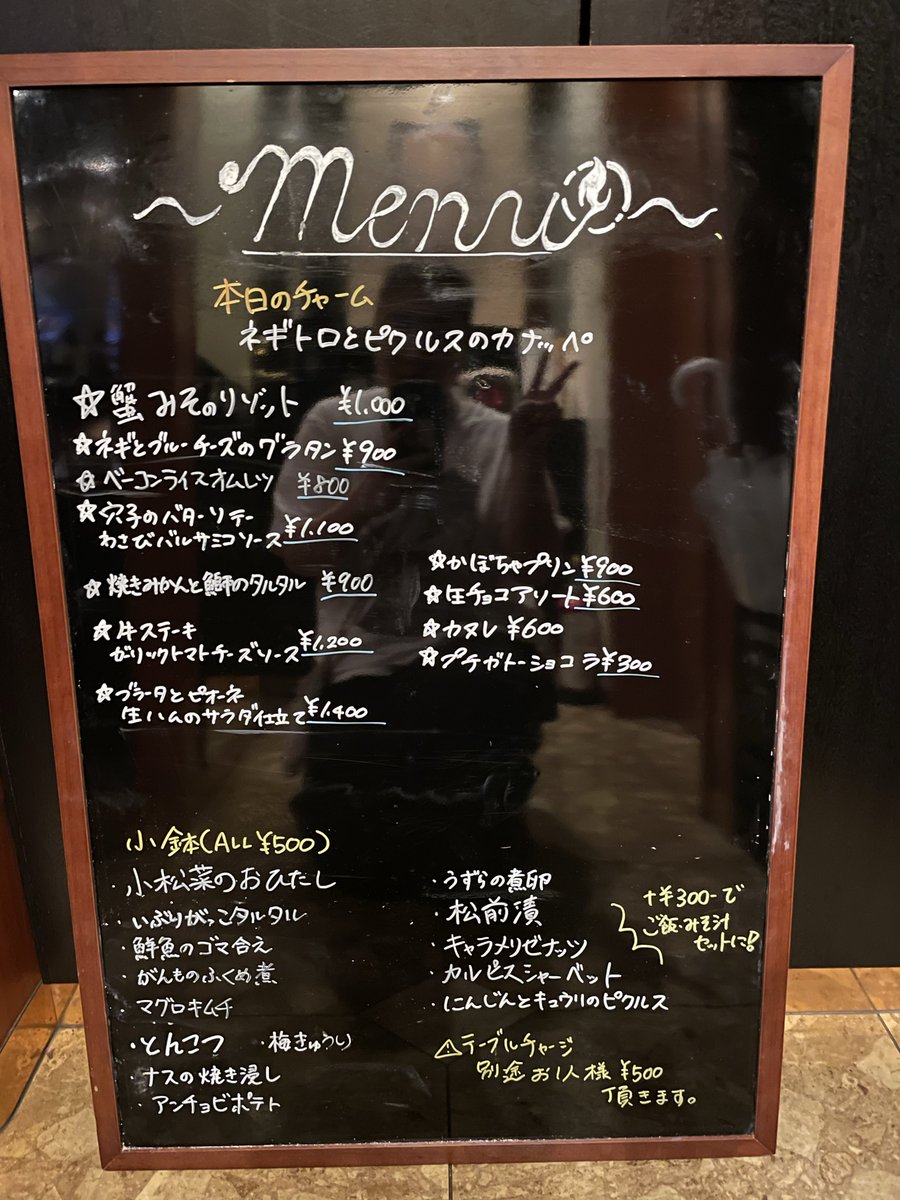 ~Menu~
本日のチャーム
ネギトロとピクルスのカナッペ
☆蟹みそのリゾット ¥1.000
☆ネギとブルーチーズのグラタン ¥900
☆ベーコンライスオムレツ ¥800
☆穴子のバターソテー
わさびバルサミコソース ¥1.100
☆焼きみかんと鰤のタルタル ¥900
☆牛ステーキ
ガリックトマトチーズソース ¥1.200
☆ブラータとピオーネ
生ハムのサラダ仕立て ¥1.400
☆かぼちゃプリン ¥900
☆生チョコアソート ¥600
☆カヌレ ¥600
☆プチガトーショコラ ¥300
小鉢(ALL ¥500)
・小松菜のおひたし
・いぶりがっこタルタル
・鮮魚のゴマ合え
・がんものふくめ煮
・マグロキムチ
・とんこつ ・梅きゅうり
・ナスの焼き浸し
・アンチョビポテト
・うずらの煮卵
・松前漬
・キャラメリゼナッツ
・カルピスシャーベット
・にんじんとキュウリのピクルス
+¥300-で
ご飯・みそ汁
セットに!!
⚠テーブルチャージ
別途お1人様 ¥500
頂きます。